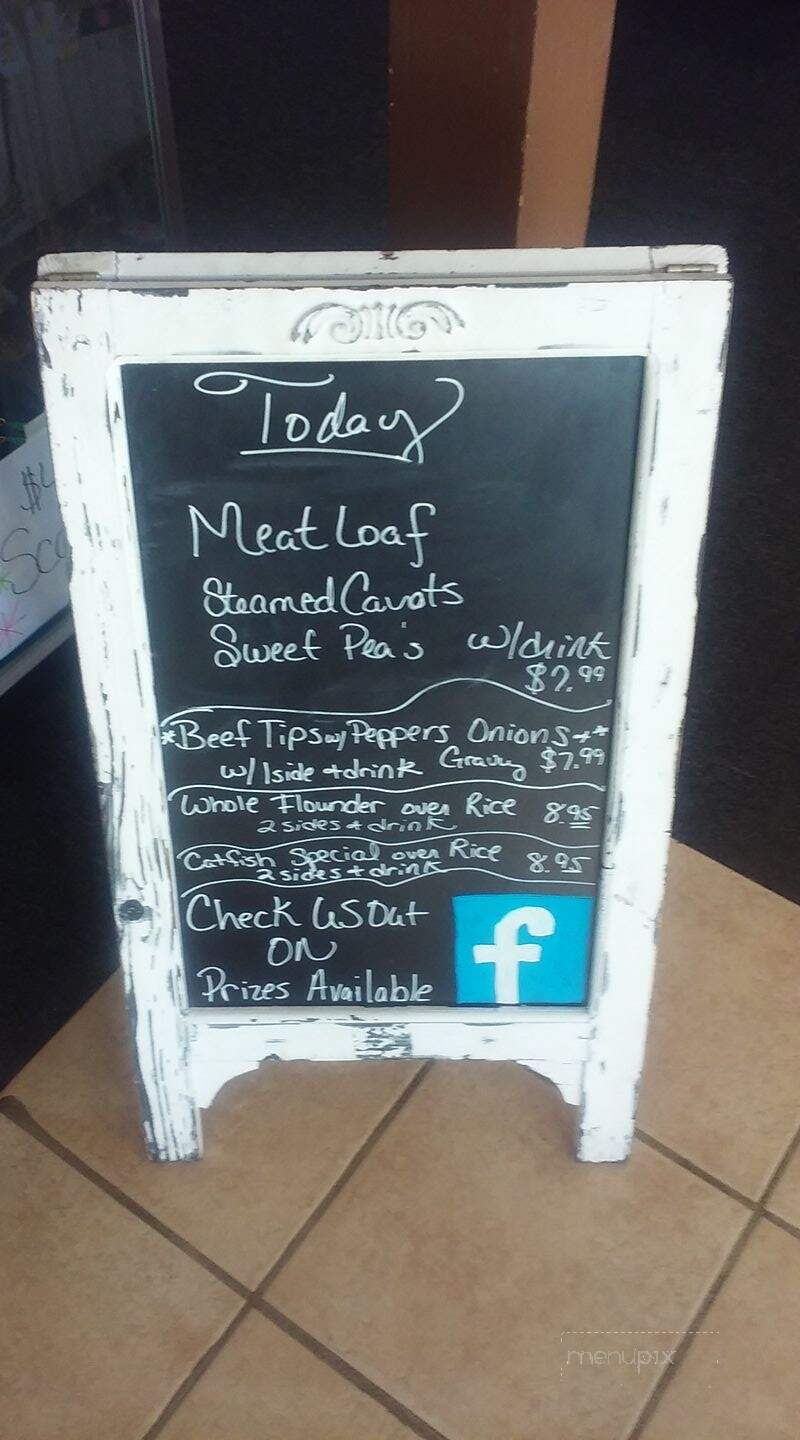 Today
Meat Loaf
Steamed Carrots
Sweet Pea's w/drink
$7.99
*Beef Tips w/ Peppers Onions **
w/ 1side + drink Gravy $7.99
Whole Flounder over Rice 8.95
2 sides + drink
Catfish Special over Rice 8.95
2 sides + drink
Check US Out
ON
Prizes Available
f
$
Sc
menupix